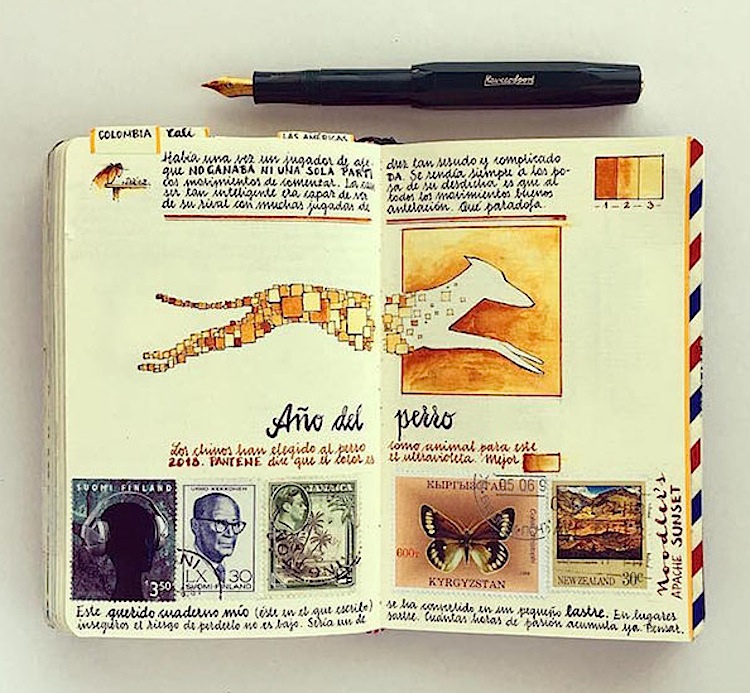 Kaweco Sport
COLOMBIA Cali
LAS AMÉRICAS
Había una vez un jugador de aje- drez tan sesudo y complicado
que NO GANABA NI UNA SOLA PARTI DA. Se rendía siempre a los po-
cos movimientos de comenzar. La ja de su desdicha es que al
ser tan inteligente era capaz de todos los movimientos buenos
de su rival con muchas jugadas de antelación. Qué paradoja.
1 - 2 - 3 -
Año del perro
Los chinos han elegido al perro como animal para este
2018. PANTENE dice que el color es el ultravioleta. Mejor
SUOMI FINLAND
3,50
URHO KEKKONEN
30
SUOMI-FINLAND
JAMAICA
КЫРГЫЗСТАН
05 06 9
600т
KYRGYZSTAN
NEW ZEALAND 30c
Noodler's
APACHE SUNSET
Este querido cuaderno mío (éste en el que escribo) se ha convertido en un pequeño lastre. En lugares
inseguros el riesgo de perderlo no es bajo. Sería un de sastre. Cuántas horas de pasión acumula ya. Pensar.